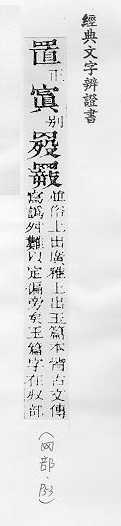 經典文字辨證書
置正寘别
並俗上出廣雅上出玉篇本皆古文傳
寫譌舛難以定偏旁矣玉篇字在部
(网部·P33)